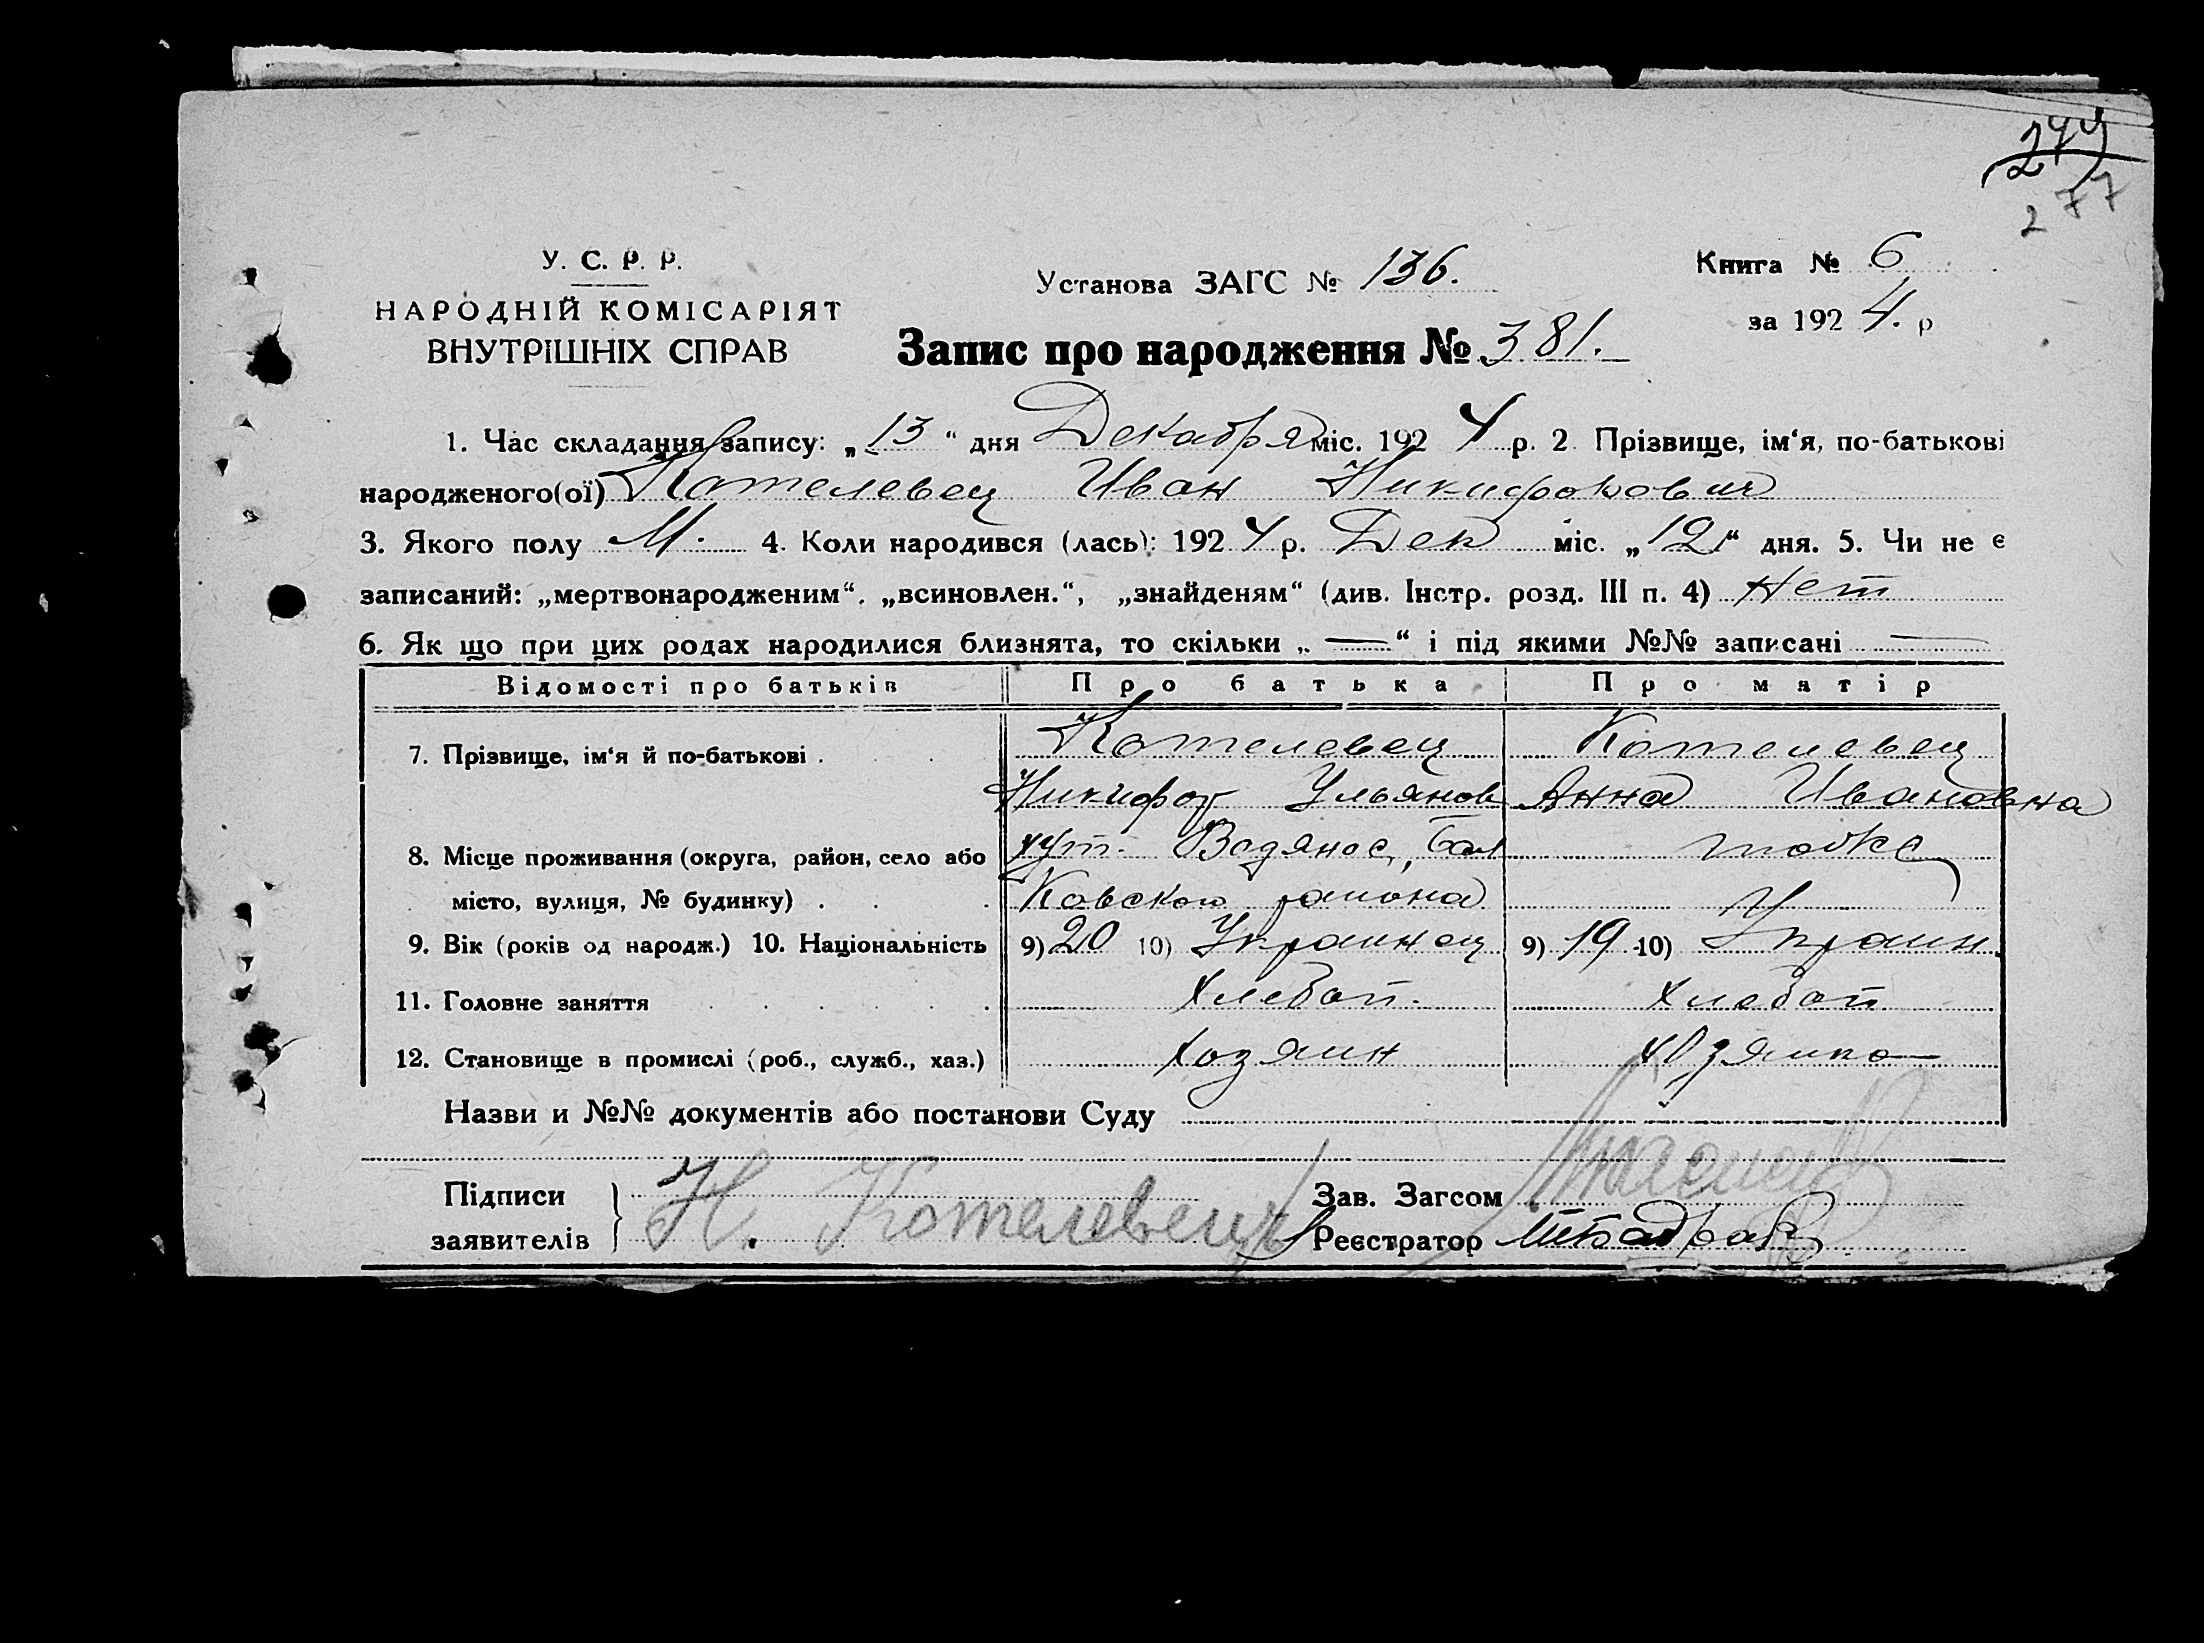 277
У. С. Р. Р.
НАРОДНІЙ КОМІСАРІЯТ
ВНУТРІШНІХ СПРАВ
Установа ЗАГС № 136.
Книга № 6
за 1924. р
Запис про народження № 381.
1. Час складання запису: „13“ дня Декабря міс. 1924 р. 2. Прізвище, ім'я, по-батькові
народженого(ої) Котелевец Иван Никифорович
3. Якого полу М. 4. Коли народився (лась): 1924 р. Дек міс. „12“ дня. 5. Чи не є
записаний: „мертвонародженим“, „всиновлен.“, „знайденям“ (див. Інстр. розд. III п. 4) нет
6. Як що при цих родах народилися близнята, то скільки „—“ і під якими №№ записані —
Відомості про батьків Про батька Про матір
7. Прізвище, ім'я й по-батькові . Котелевец Котелевец
Никифор Ульянов Анна Ивановна
8. Місце проживання (округа, район, село або хут. Водяное, Бал тоже
місто, вулиця, № будинку) . Ковского района
9. Вік (років од народж.) 10. Національність 9) 20 10) Украинец 9) 19 10) Украин
11. Головне заняття Хлебоп. Хлебоп
12. Становище в промислі (роб., служб., хаз.) Хозяин хозяика
Назви и №№ документів або постанови Суду
Підписи
заявителів
Н. Котелевец
Зав. Загсом
Реєстратор